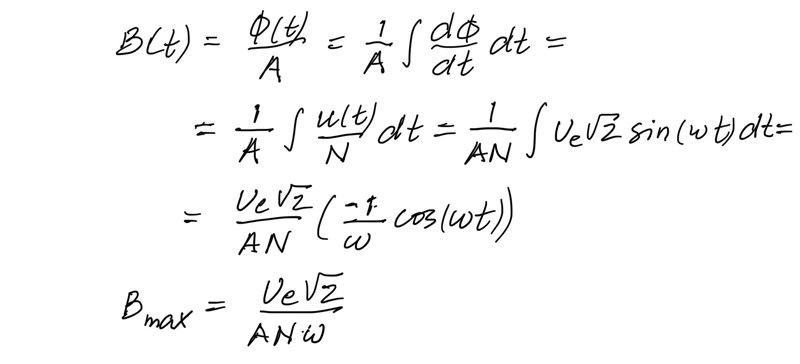 B(t) = ϕ(t)/A = 1/A ∫ dϕ/dt dt =
= 1/A ∫ u(t)/N dt = 1/AN ∫ Ue√2 sin(ωt) dt =
= Ue√2/AN (-1/ω cos(ωt))
Bmax = Ue√2/AN·ω